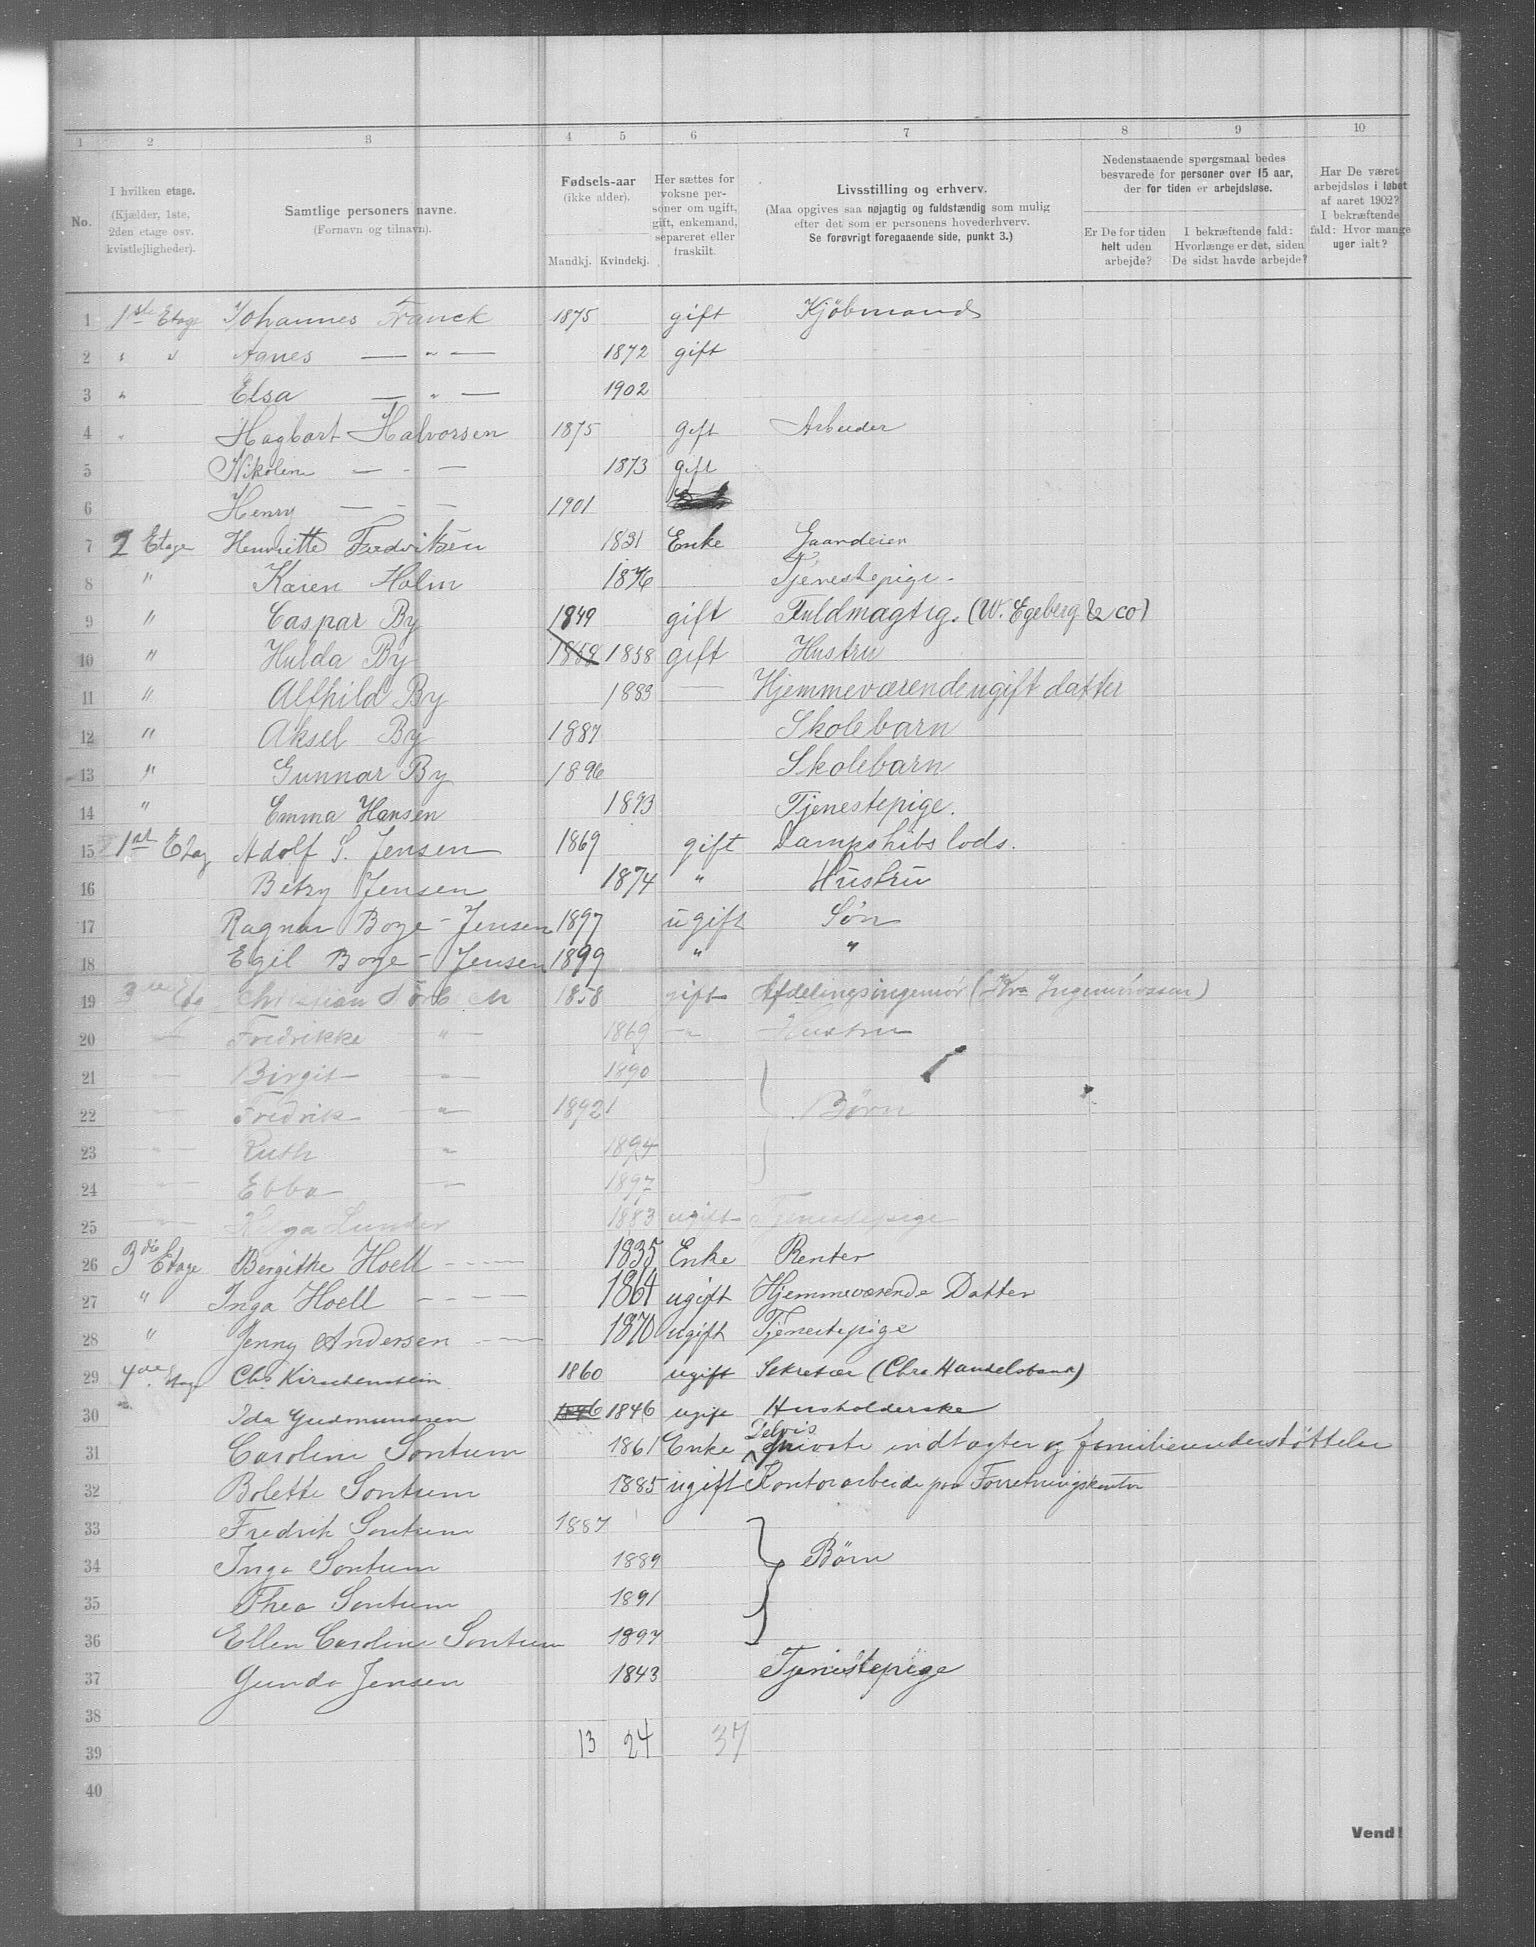 1 2 3 4 5 6 7 8 9 10
No.
I hvilken etage.
(Kjælder, 1ste,
2den etage osv.
kvistlejligheder).
Samtlige personers navne.
(Fornavn og tilnavn).
Fødsels-aar
(ikke alder).
Mandkj. Kvindekj.
Her sættes for
voksne per-
soner om ugift,
gift, enkemand,
separeret eller
fraskilt.
Livsstilling og erhverv.
(Maa opgives saa nøjagtig og fuldstændig som mulig
efter det som er personens hovederhverv.
Se forøvrigt foregaaende side, punkt 3.)
Nedenstaaende spørgsmaal bedes
besvarede for personer over 15 aar,
der for tiden er arbejdsløse.
Er De for tiden
helt uden
arbejde?
I bekræftende fald:
Hvorlænge er det, siden
De sidst havde arbejde?
Har De været
arbejdsløs i løbet
af aaret 1902?
I bekræftende
fald: Hvor mange
uger ialt?
1 1ste Etage Johannes Franck 1875 gift Kjøbmand
2 " " Agnes — " — 1872 gift
3 " Elsa — " — 1902
4 " Hagbart Halvorsen 1875 gift Arbeider
5 Nikoline — " — 1873 gift
6 Henry — " — 1901
7 2 Etage Henriette Fredriksen 1831 Enke Gaardeier
8 " Karen Holm 1876 Tjenestepige.
9 " Caspar By 1849 gift Fuldmægtig. (W. Egeberg & co)
10 " Hulda By 1858 1858 gift Hustru
11 " Alfhild By 1883 — Hjemmeværende ugift datter
12 " Aksel By 1887 Skolebarn
13 " Gunnar By 1896 Skolebarn
14 " Emma Hansen 1873 Tjenestepige.
15 1st Etag Adolf S. Jensen 1869 gift Dampskibs lods.
16 Betzy Jensen 1874 " Hustru
17 Ragnar Boye-Jensen 1897 ugift Søn
18 Egil Boye-Jensen 1899 " "
19 3die Etg Christian 1858 gift Afdelingsingeniør (Kra Ingeniørvæsen)
20 Fredrikke " 1869 " Hustru
21 Birgit " 1890
22 Fredrik " 1892 Børn
23 Ruth " 1894
24 Ebba " 1897
25 Helga Lunder 1883 ugift Tjenestepige
26 3die Etage Bergitte Hoell 1835 Enke Renter
27 " Inga Hoell 1864 ugift Hjemmeværende Datter
28 " Jenny Andersen 1870 ugift Tjenestepige
29 4de Etag Chr. Kirschenstein 1860 ugift Sekretær (Chra Handelsbank)
30 Ida Gudmundsen 1846 1846 ugift Husholderske
31 Caroline Sontum 1861 Enke Delvis private indtægter og familieunderstøttelse
32 Bolette Sontum 1885 ugift Kontorarbeide paa Forretningskontor
33 Fredrik Sontum 1887
34 Inga Sontum 1889 Børn
35 Thea Sontum 1891
36 Ellen Caroline Sontum 1897
37 Gunda Jensen 1843 Tjenestepige
38
39 13 24 37
40
Vend!